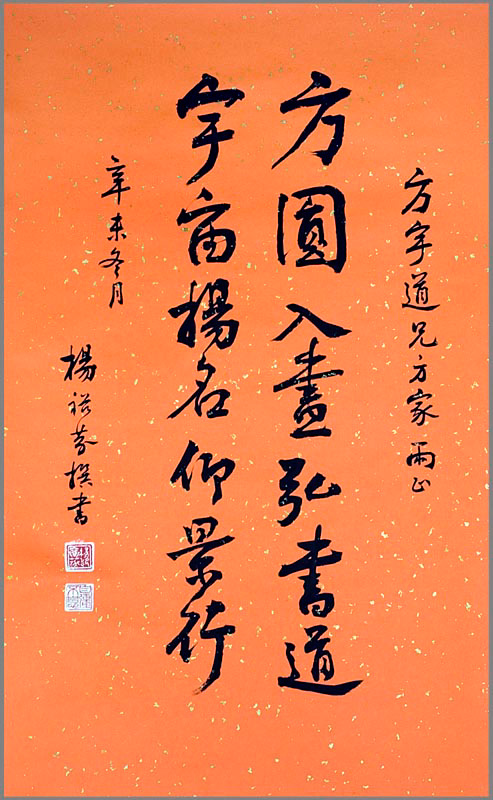 方宇道兄方家兩正
方圓入畫弘書道
宇宙揚名仰景行
辛未冬月
楊 芬撰書